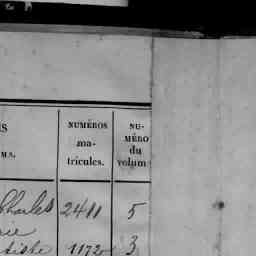 NUMÉROS
ma-
tricules.
NU-
MÉRO
du
volum
Charles 2411 5
rie
1172 3